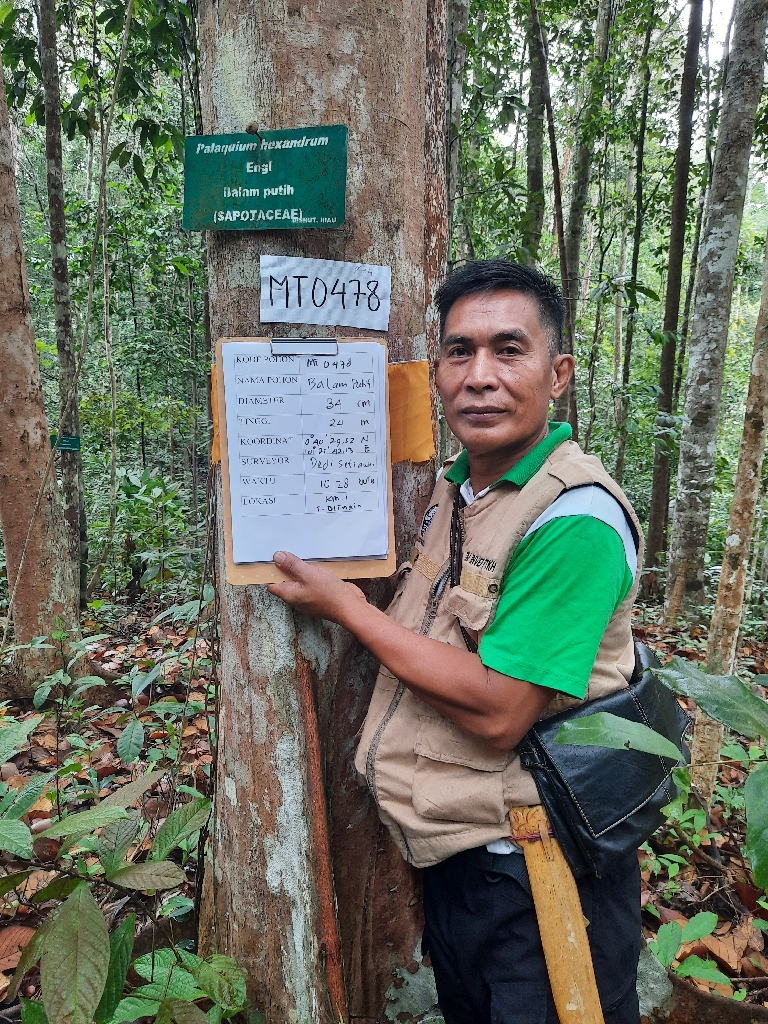 Palaquium hexandrum
Engl
Balam putih
(SAPOTACEAE)
DISHUT. RIAU
MT0478
KODE POHON MT 0478
NAMA POHON Balam Putih
DIAMETER 34 cm
TINGGI 24 m
KOORDINAT 0° 40' 29,52 N
SURVEYOR Dedi Setiawan
WAKTU 10 28 WIB
LOKASI KM 1